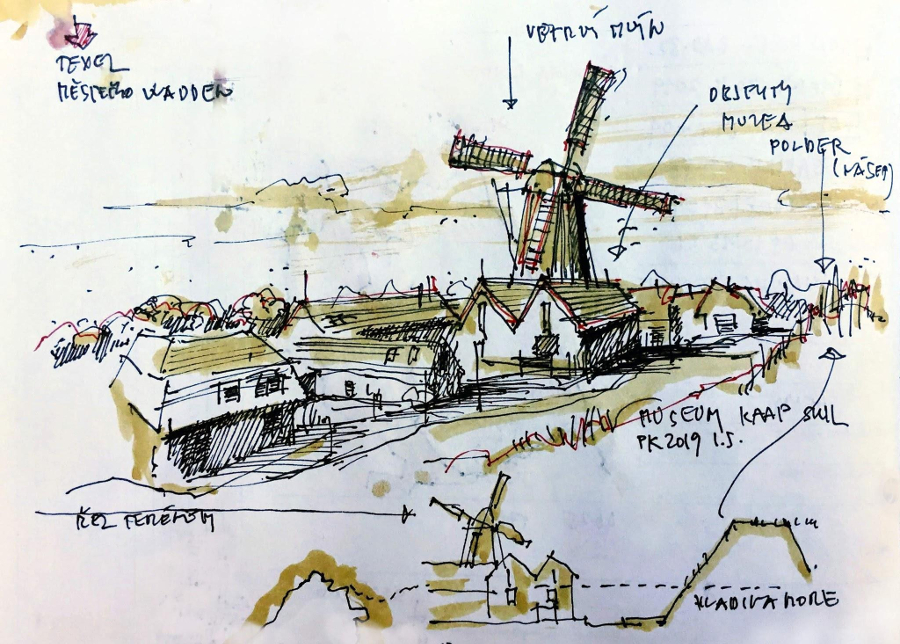 TEXEL
MĚSTEČKO WADDEN
VĚTRNÝ MLÝN
OBJEKTY
MUZEA
POLDER
(NÁSEP)
MUSEUM KAAP SKIL
PK 2019
ŘEZ TERÉNEM
HLADINA MOŘE